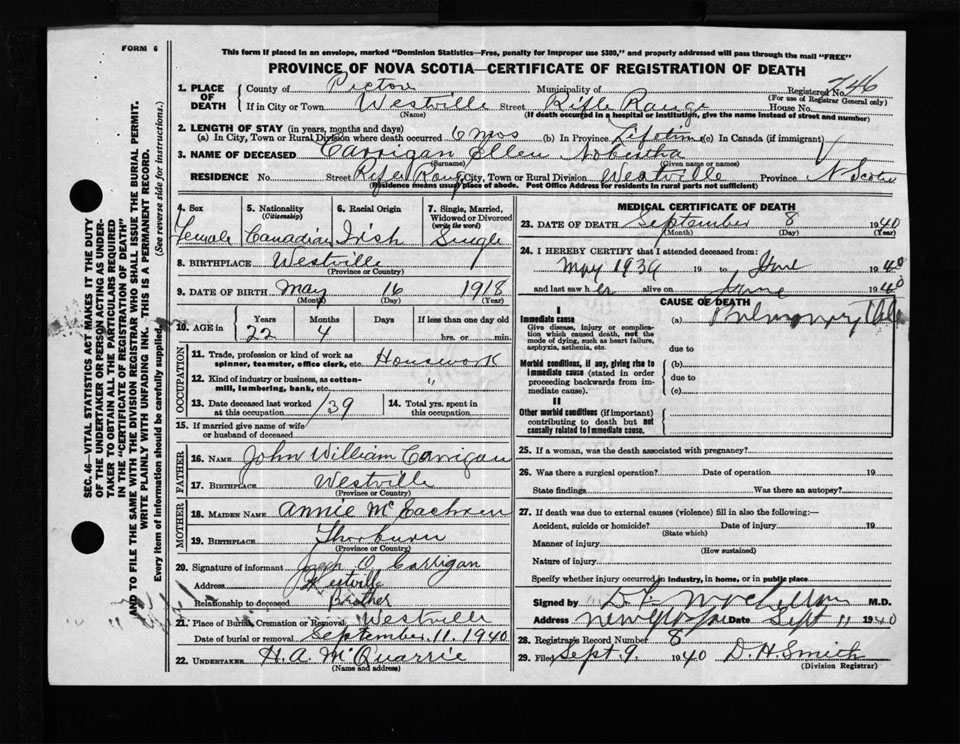 FORM 6
This form if placed in an envelope, marked "Dominion Statistics—Free, penalty for improper use $300," and properly addressed will pass through the mail "FREE"
PROVINCE OF NOVA SCOTIA—CERTIFICATE OF REGISTRATION OF DEATH
SEC. 46—VITAL STATISTICS ACT MAKES IT THE DUTY
OF THE UNDERTAKER OR PERSON ACTING AS UNDER-
TAKER TO OBTAIN ALL THE PARTICULARS REQUIRED
IN THE "CERTIFICATE OF REGISTRATION OF DEATH"
AND TO FILE THE SAME WITH THE DIVISION REGISTRAR WHO SHALL ISSUE THE BURIAL PERMIT.
WRITE PLAINLY WITH UNFADING INK. THIS IS A PERMANENT RECORD.
Every item of information should be carefully supplied. (See reverse side for instructions.)
1. PLACE OF DEATH
County of Pictou Municipality of Registered No. 746
(For use of Registrar General only)
If in City or Town Westville Street Rifle Range House No.
(Name) (If death occurred in a hospital or institution, give the name instead of street and number)
2. LENGTH OF STAY (in years, months and days)
(a) In City, Town or Rural Division where death occurred 6 mos (b) In Province Lifetime (c) In Canada (if immigrant)
3. NAME OF DECEASED Carrigan Ellen
(Surname) (Given name or names)
RESIDENCE No. Street Rifle Range City, Town or Rural Division Westville Province N. Scotia
(Residence means usual place of abode. Post Office Address for residents in rural parts not sufficient)
4. Sex Female
5. Nationality (Citizenship) Canadian
6. Racial Origin Irish
7. Single, Married, Widowed or Divorced (write the word) Single
8. BIRTHPLACE Westville
(Province or Country)
9. DATE OF BIRTH May 16 1918
(Month) (Day) (Year)
10. AGE in Years Months Days If less than one day old
22 4 hrs. or min.
OCCUPATION
11. Trade, profession or kind of work as spinner, teamster, office clerk, etc. Housework
12. Kind of industry or business, as cotton-mill, lumbering, bank, etc. "
13. Date deceased last worked at this occupation /39
14. Total yrs. spent in this occupation
15. If married give name of wife or husband of deceased
FATHER
16. NAME John William Carrigan
17. BIRTHPLACE Westville
(Province or Country)
MOTHER
18. MAIDEN NAME Annie McEachren
19. BIRTHPLACE Thorburn
(Province or Country)
20. Signature of informant O. Carrigan
Address Westville
Relationship to deceased Brother
21. Place of Burial, Cremation or Removal Westville
Date of burial or removal September 11. 1940
22. UNDERTAKER H. A. McQuarrie
(Name and address)
MEDICAL CERTIFICATE OF DEATH
23. DATE OF DEATH September 8 1940
(Month) (Day) (Year)
24. I HEREBY CERTIFY that I attended deceased from:
May 1939 19 to June 1940
and last saw her alive on June 1940
CAUSE OF DEATH
I
Immediate cause
Give disease, injury or complication which caused death, not the mode of dying, such as heart failure, asphyxia, asthenia, etc.
(a) Pulmonary
due to
Morbid conditions, if any, giving rise to immediate cause (stated in order proceeding backwards from immediate cause).
(b)
due to
(c)
II
Other morbid conditions (if important) contributing to death but not causally related to immediate cause.
25. If a woman, was the death associated with pregnancy?
26. Was there a surgical operation? Date of operation 19
State findings Was there an autopsy?
27. If death was due to external causes (violence) fill in also the following:—
Accident, suicide or homicide? Date of injury 19
(State which)
Manner of injury
(How sustained)
Nature of injury
Specify whether injury occurred in industry, in home, or in public place
Signed by M.D.
Address Date Sept 11 1940
28. Registrars Record Number 8
29. Filed Sept. 9. 1940 D. H. Smith
(Division Registrar)